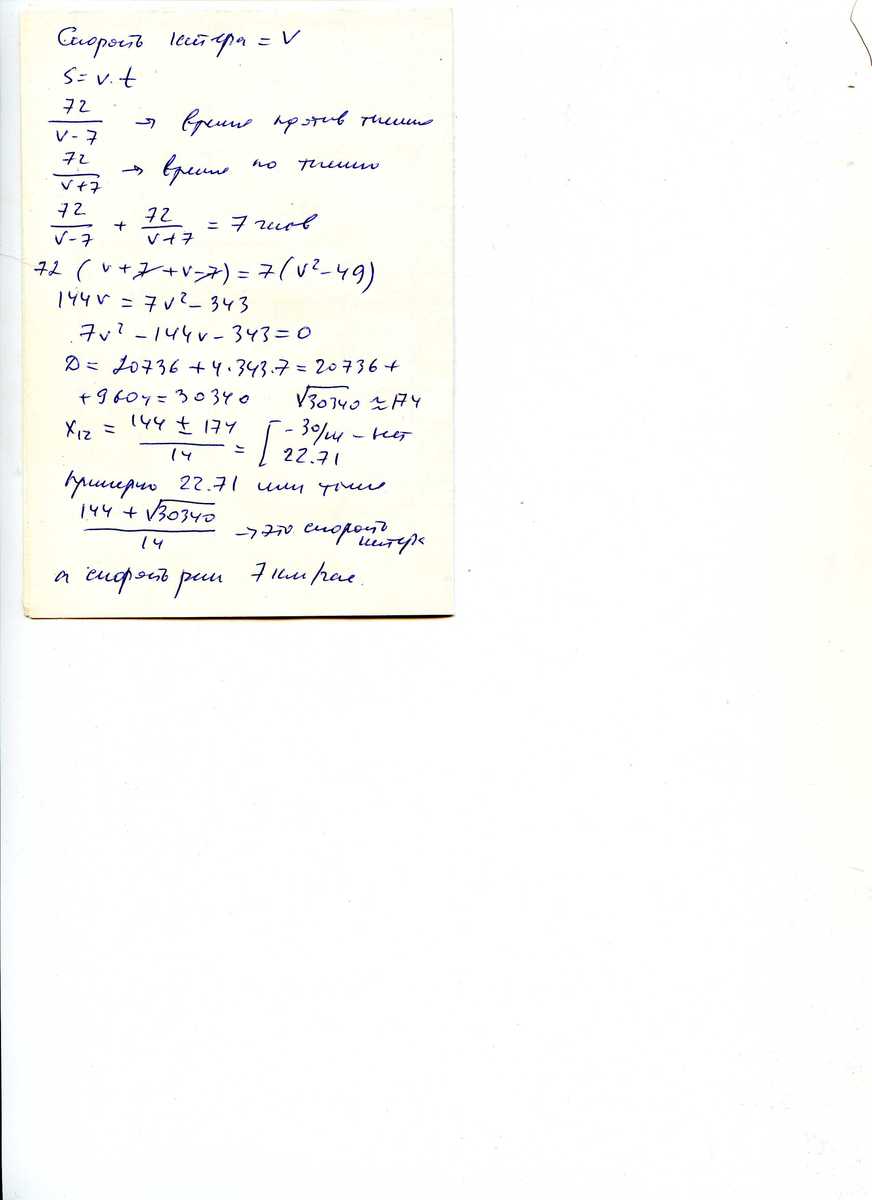 Скорость катера = V
S = v · t
72/(v - 7) → время против течения
72/(v + 7) → время по течению
72/(v - 7) + 72/(v + 7) = 7 часов
72 (v + 7 + v - 7) = 7 (v² - 49)
144v = 7v² - 343
7v² - 144v - 343 = 0
D = 20736 + 4·343·7 = 20736 +
+ 9604 = 30340 √30340 ≈ 174
X₁₂ = (144 ± 174)/14 = [ - 30/14 - нет
22.71
Примерно 22.71 или точно
(144 + √30340)/14 → это скорость катера
а скорость реки 7 км/час.